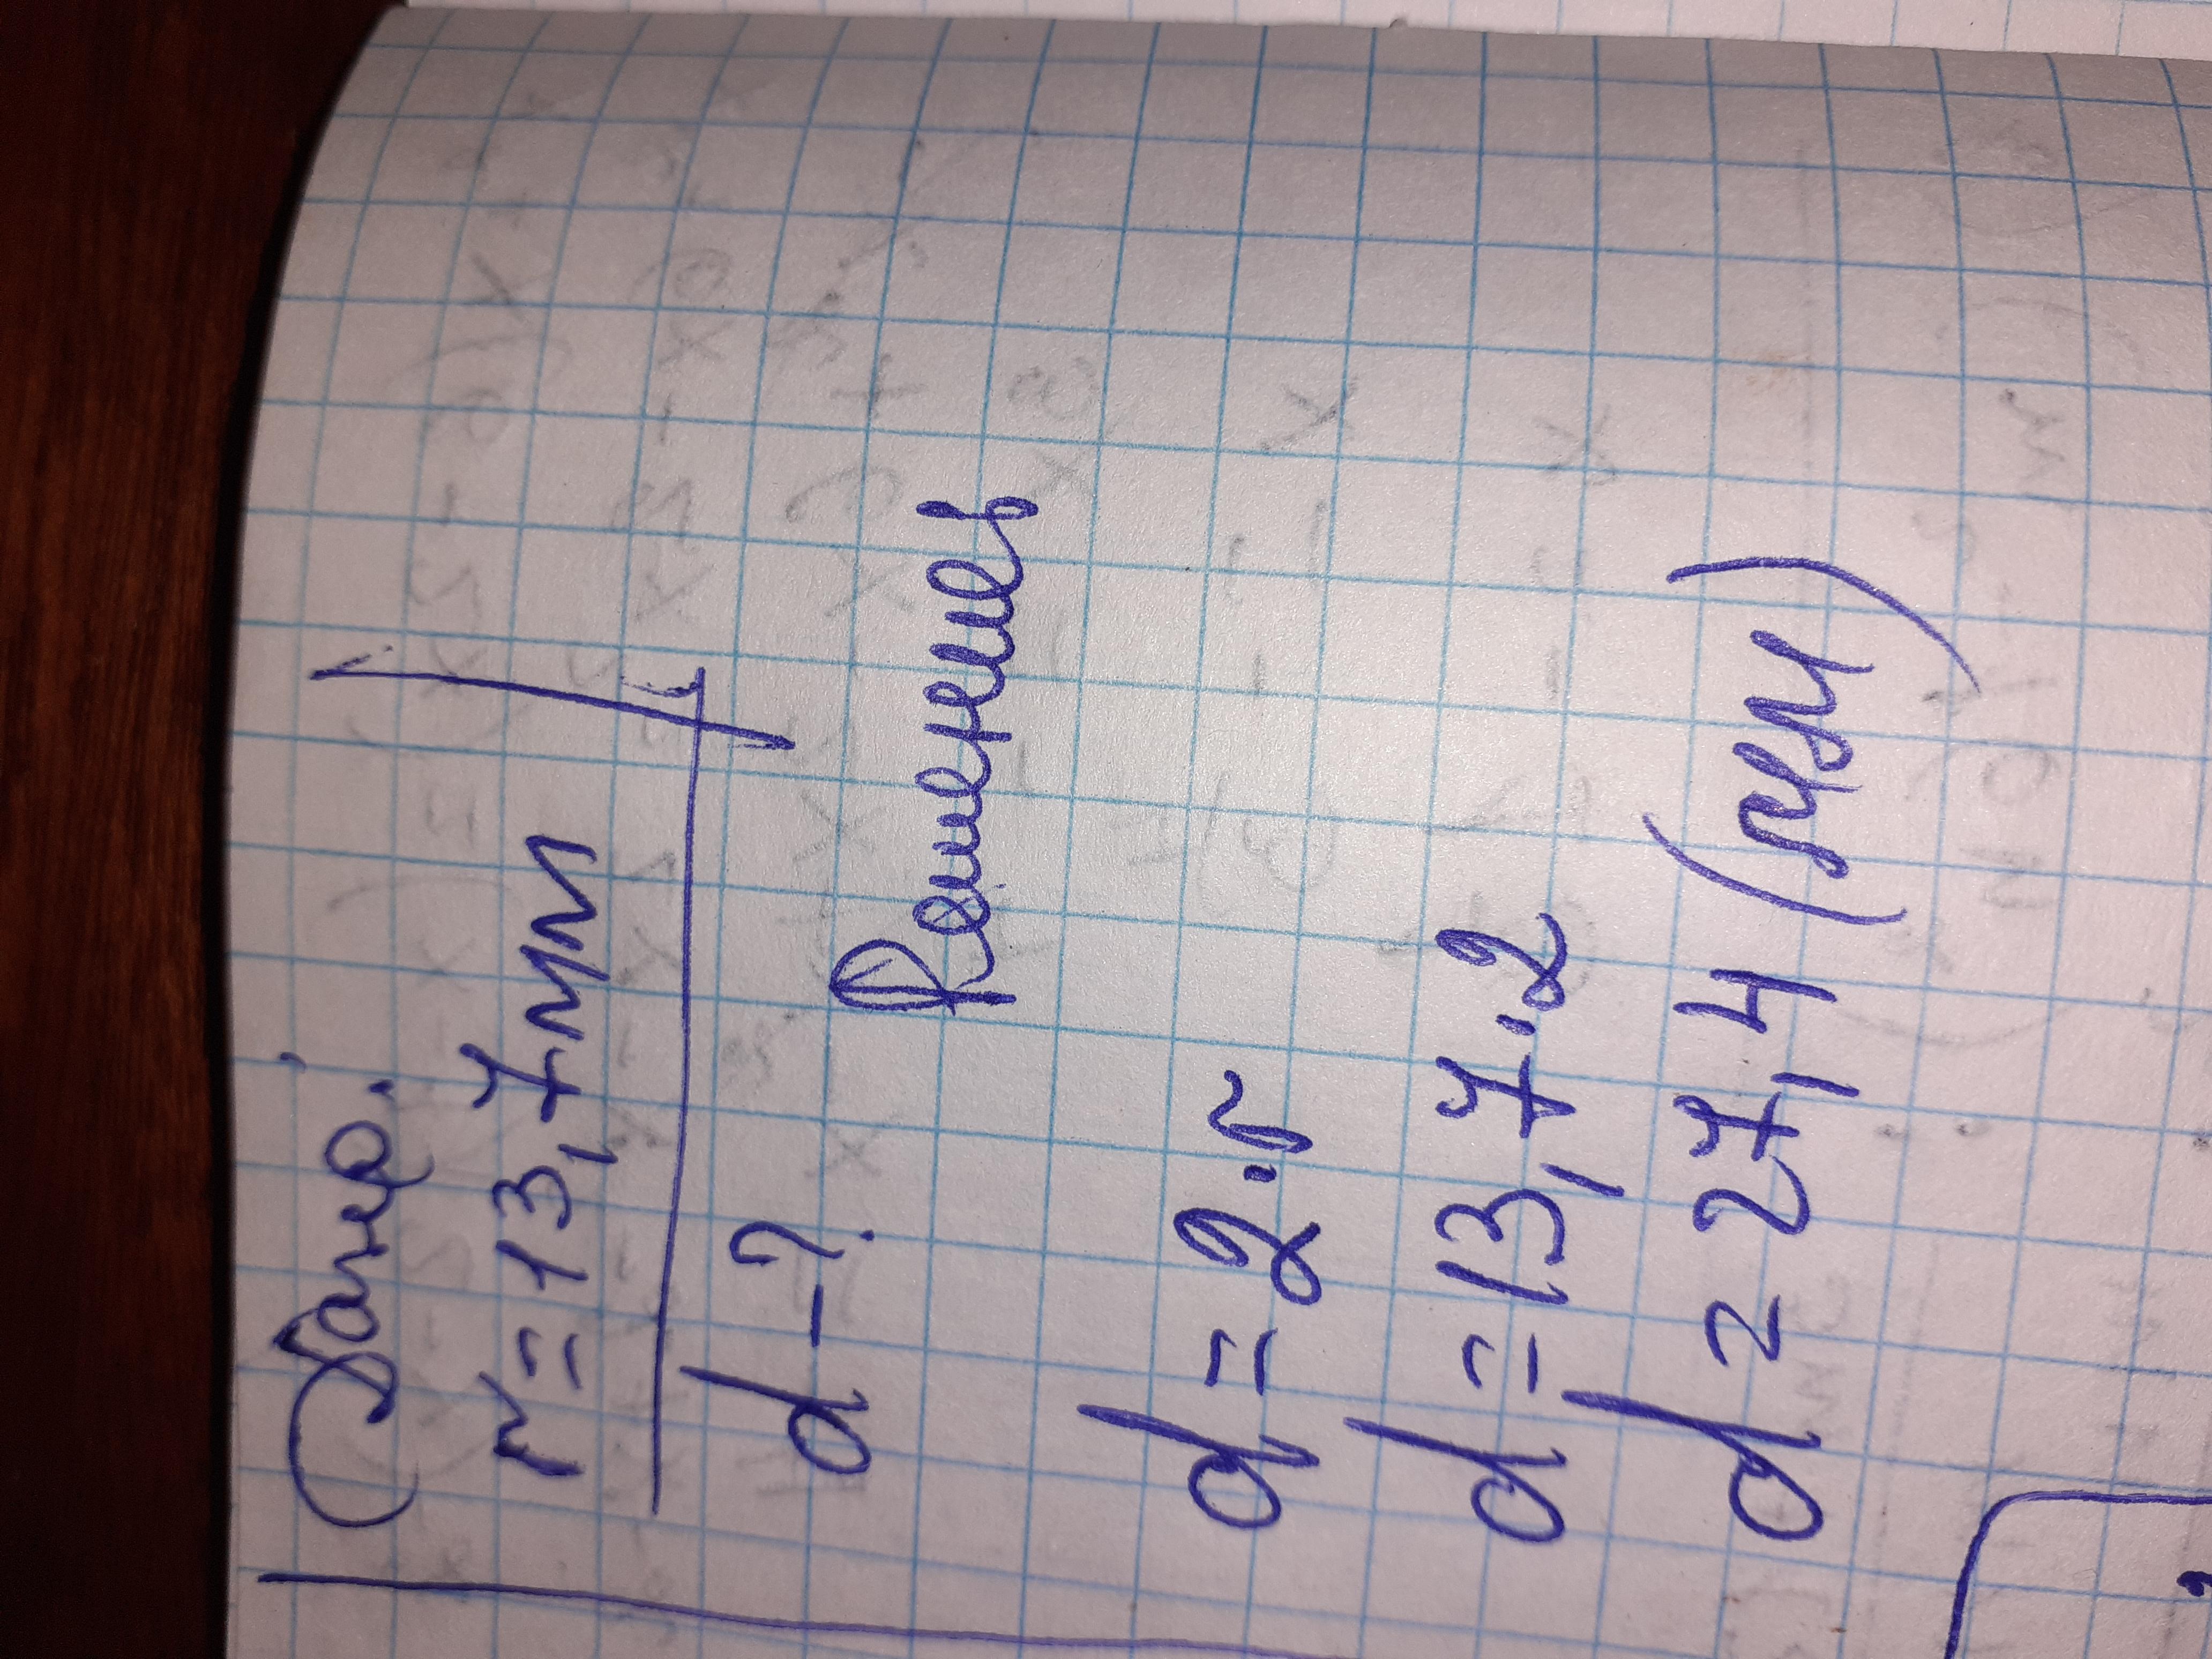 Дано:
r = 13,7 мм
d - ?
Решение
d = 2·r
d = 13,7·2
d = 27,4 (мм)